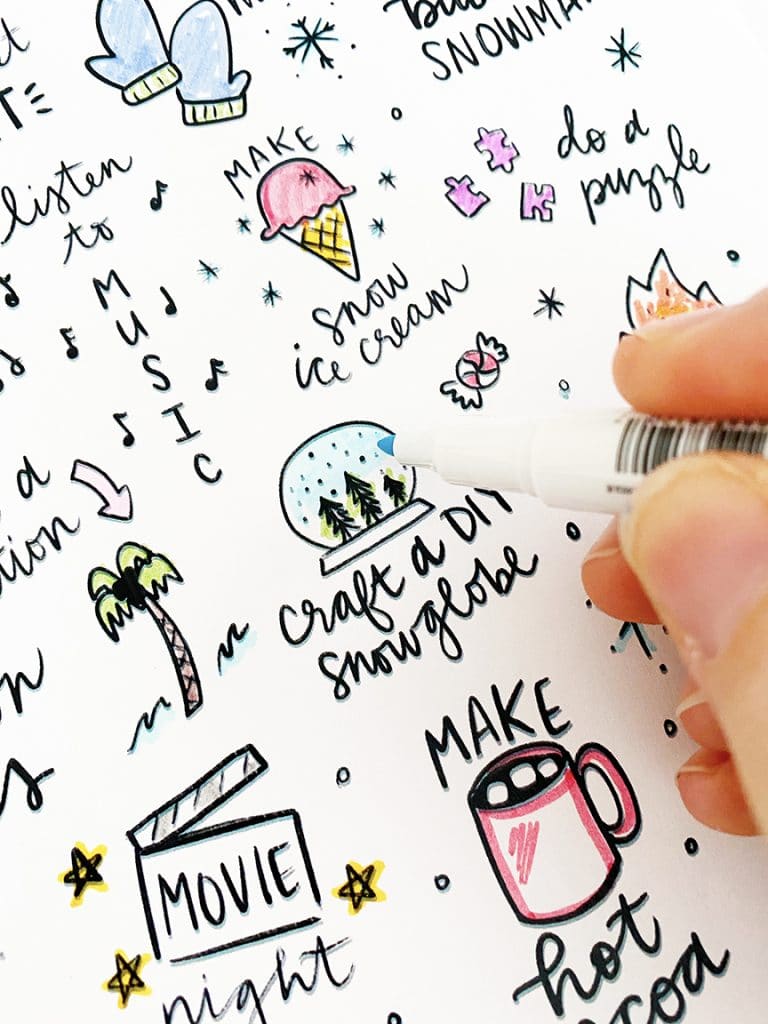 SNOWMA
listen
to
MUSIC
MAKE
snow
ice cream
do a
puzzle
a
craft a DIY
snowglobe
MOVIE
night
MAKE
hot